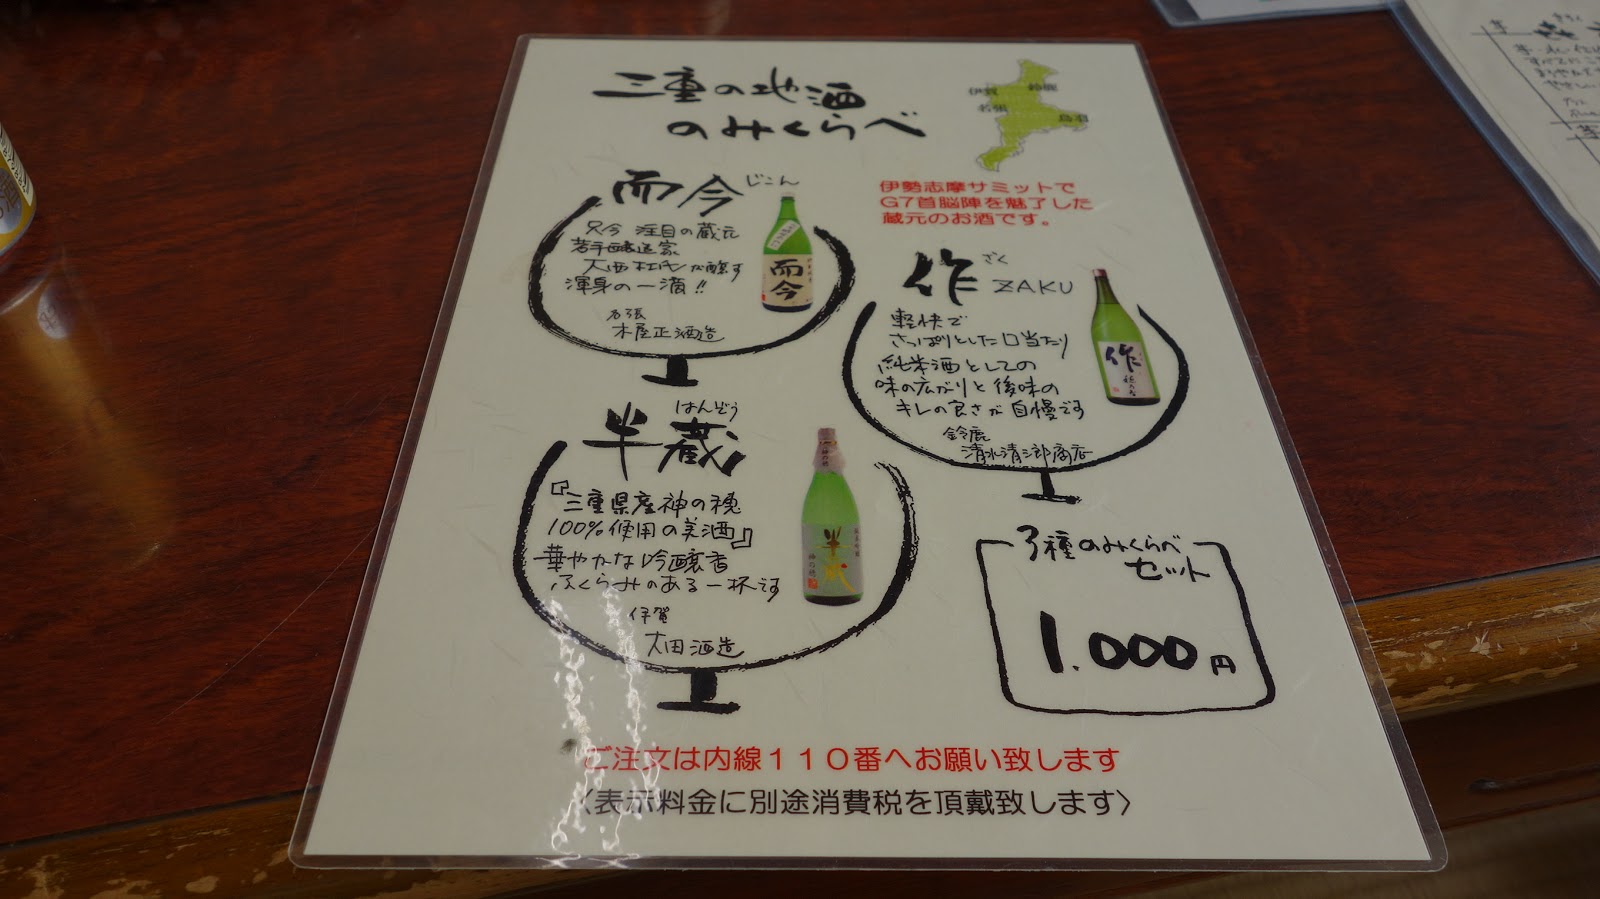 三重の地酒
のみくらべ
伊賀
鈴鹿
名張
鳥羽
伊勢志摩サミットで
G7首脳陣を魅了した
蔵元のお酒です。
而今 じこん
只今 注目の蔵元
若手醸造家
大西杜氏が醸す
渾身の一滴!!
名張
木屋正酒造
而今
作 ざく
ZAKU
軽快で
さっぱりとした口当たり
純米酒としての
味の広がりと後味の
キレの良さが自慢です
鈴鹿
清水清三郎商店
作
はんぞう
半蔵
『三重県産神の穂
100%使用の美酒』
華やかな吟醸香
ふくらみのある一杯です
伊賀
大田酒造
半蔵
3種のみくらべ
セット
1.000円
ご注文は内線110番へお願い致します
〈表示料金に別途消費税を頂戴致します〉